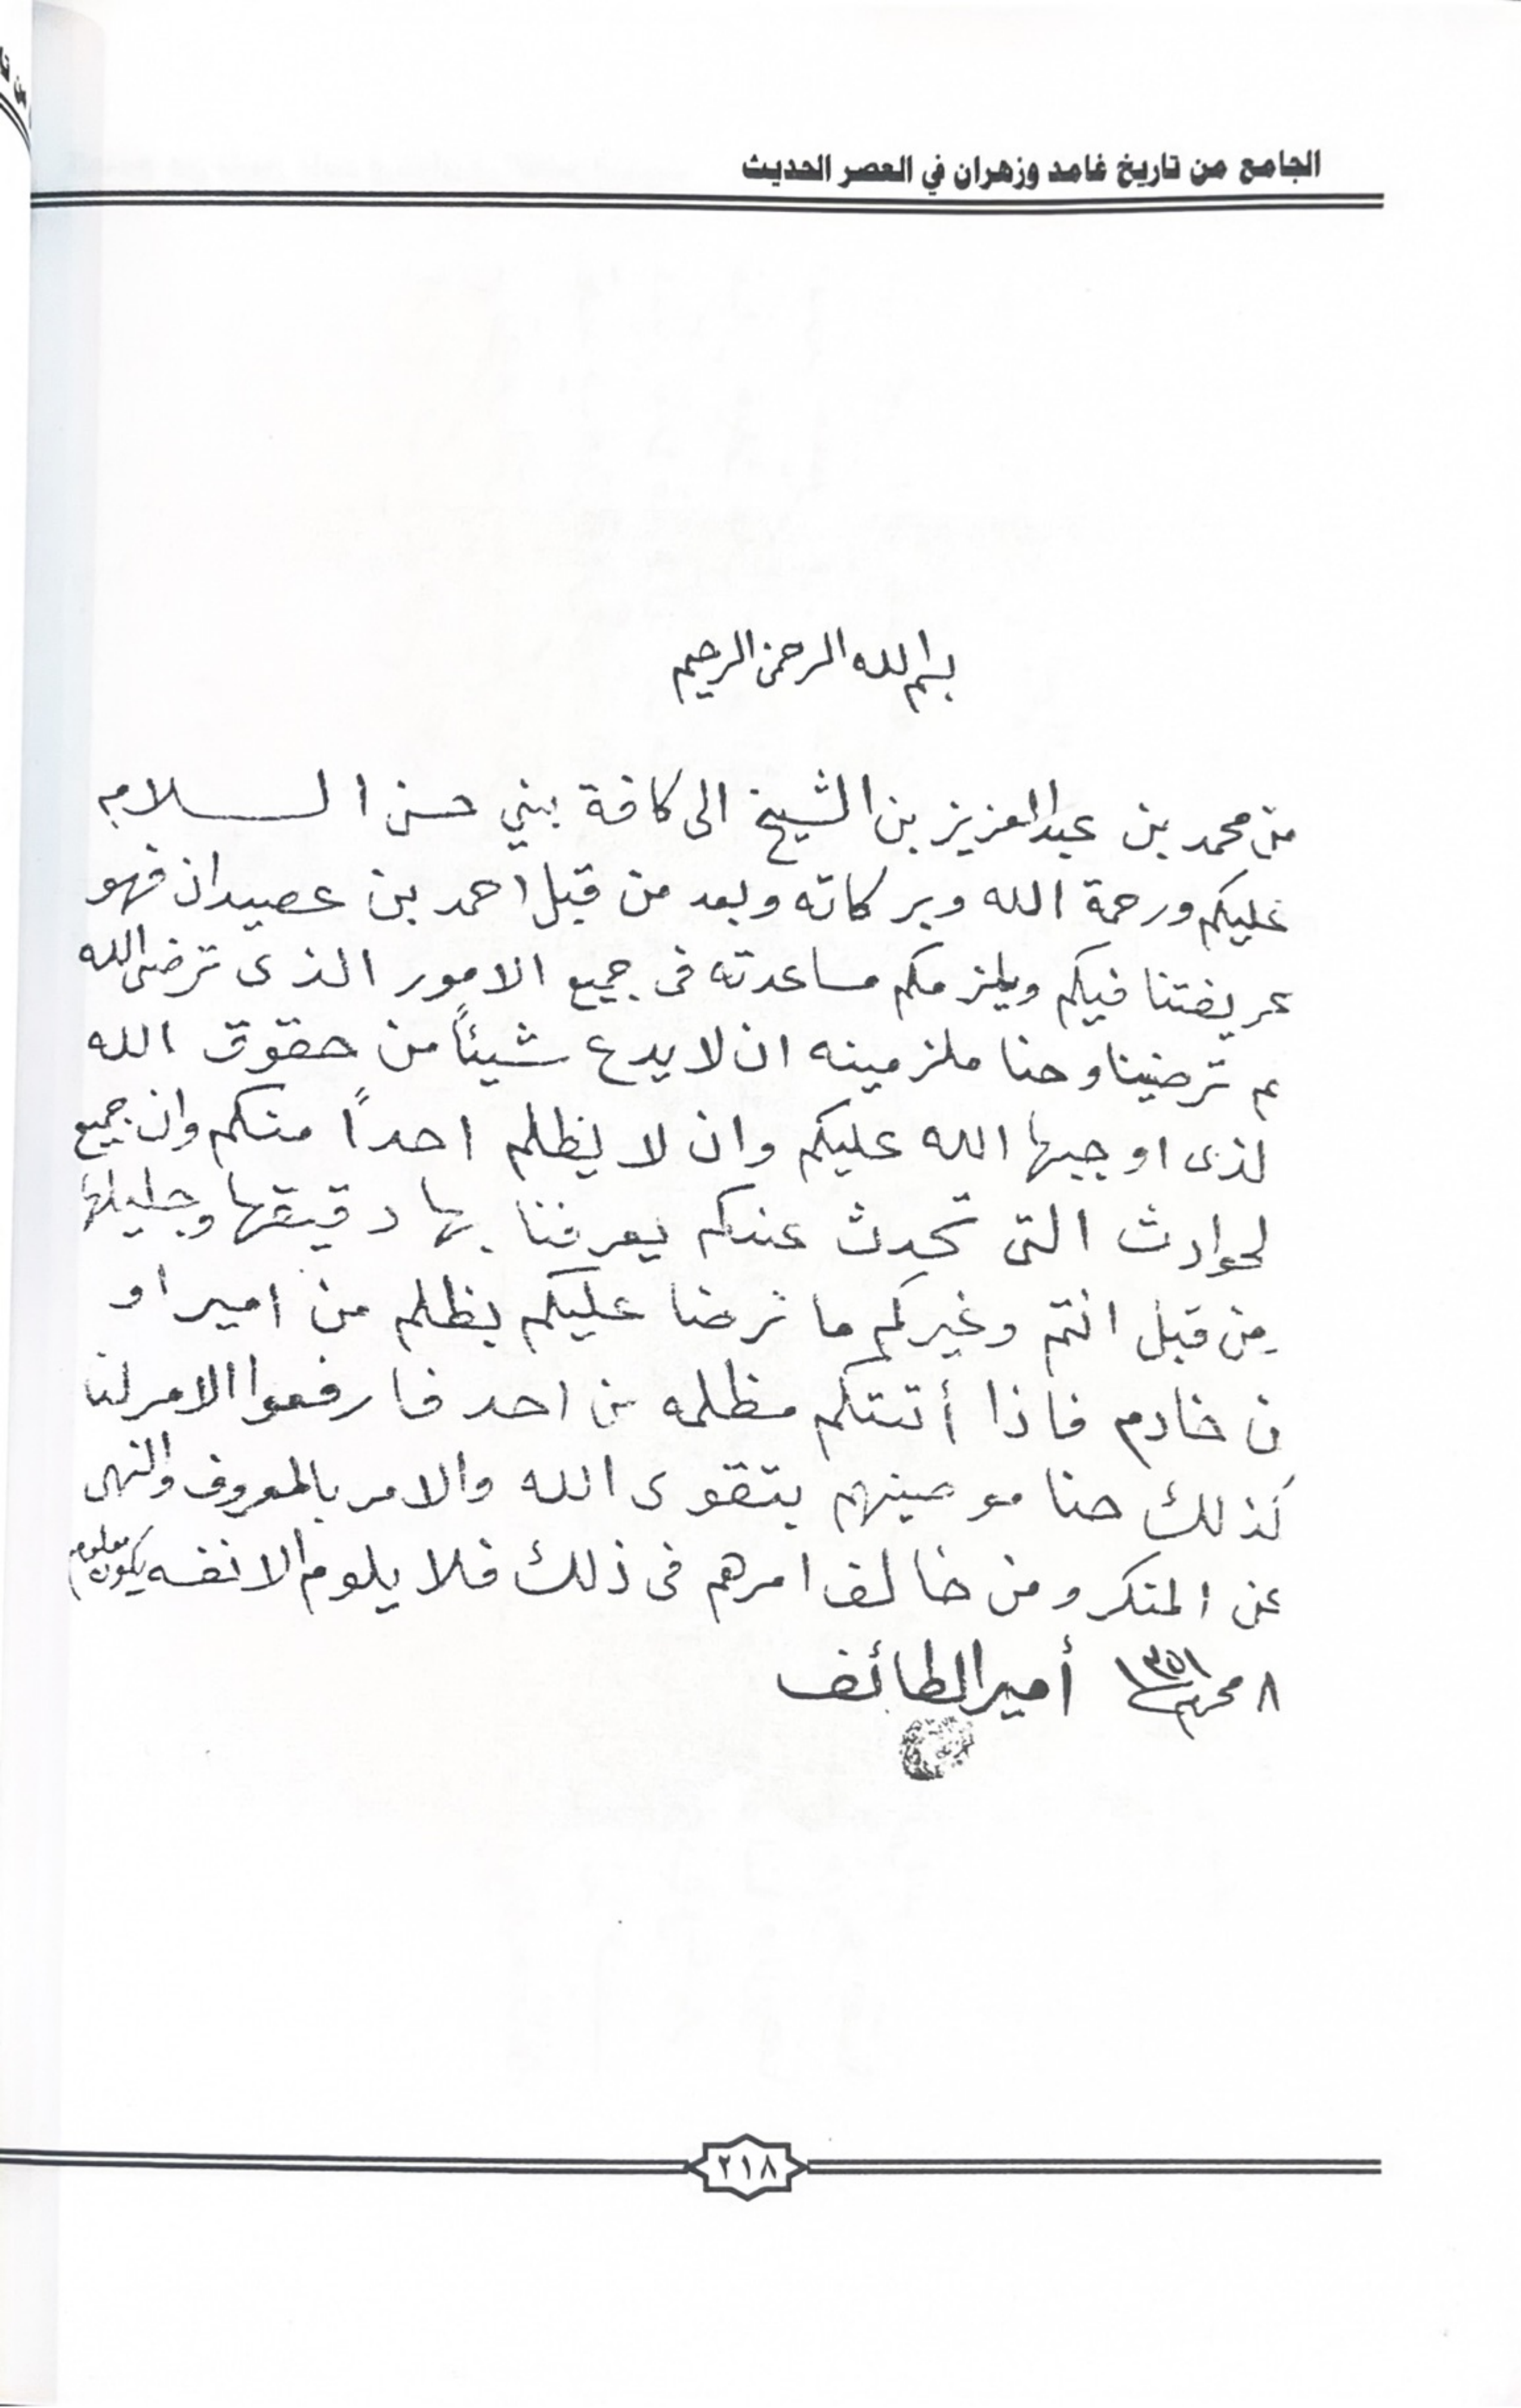 الجامع من تاريخ غامد وزهران في العصر الحديث
بسم الله الرحمن الرحيم
من محمد بن عبدالعزيز بن الشيخ الى كافة بني حسن الســــلام
عليكم ورحمة الله وبركاته وبعد من قبل احمد بن عصيدان فهو
عريفتنا فيكم ويلزمكم مساعدته فى جميع الامور الذى ترضى الله
ثم ترضينا وحنا ملزمينه ان لا يدع شيئاً من حقوق الله
لذى اوجبها الله عليكم وان لا يظلم احداً منكم وان جميع
لحوادث التى تحدث عندكم يعرفنا بها دقيقها وجليلها
من قبل انتم وغيركم ما نرضا عليكم بظلم من امير او
ن خادم فاذا أتتكم مظلمه من احد فارفعوا الامر لنا
كذلك حنا موصينهم بتقوى الله والامر بالمعروف والنهى
عن المنكر ومن خالف امرهم فى ذلك فلا يلوم الا نفسه يكون معلوم
٨ محرم ١٣٥١ أمير الطائف
٢١٨